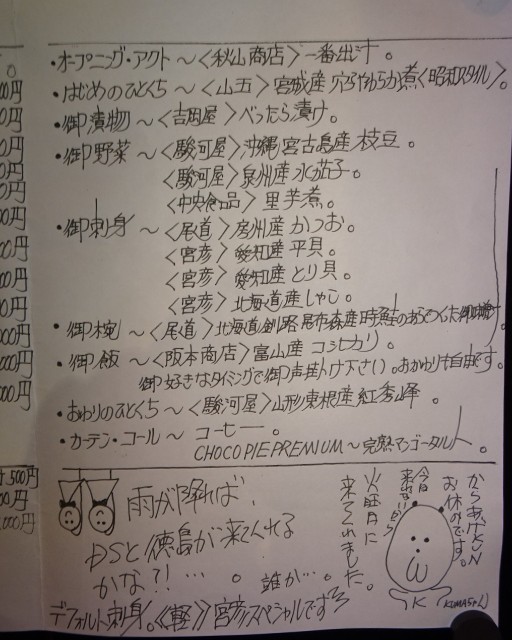 ・オープニング・アクト〜〈秋山商店〉一番出汁。
・はじめのひとくち〜〈山五〉宮城産 穴子やわらか煮〈昭和スタイル〉。
・御漬物〜〈吉岡屋〉べったら漬け。
・御野菜〜〈駿河屋〉沖縄宮古島産枝豆。
〈駿河屋〉泉州産水茄子。
〈中央食品〉里芋煮。
・御刺身〜〈尾道〉房州産かつお。
〈宮彦〉愛知産平貝。
〈宮彦〉愛知産とり貝。
〈宮彦〉北海道産しゃこ。
・御椀〜〈尾道〉北海道釧路昆布森産時鮭のあら
・御飯〜〈阪本商店〉富山産コシヒカリ。
御好きなタイミングで御声掛け下さい。おかわり自由です。
・おわりのひとくち〜〈駿河屋〉山形東根産紅秀峰。
・カーテン・コール〜コーヒー。
CHOCO PIE PREMIUM〜完熟マンゴータルト。
00円
0円
0円
00円
0円
00円
00円
00円
00円
000円
00円
000円
1,500円
00円
,000円
雨が降れば、
DSと徳島が来てくれる
かな?!…。誰が…。
デフォルト刺身。〈軽〉宮彦スペシャルです
からあげKUN
お休みです。
今日
来れないから
火曜日に
来てくれました。
K
(KUMAちゃん)